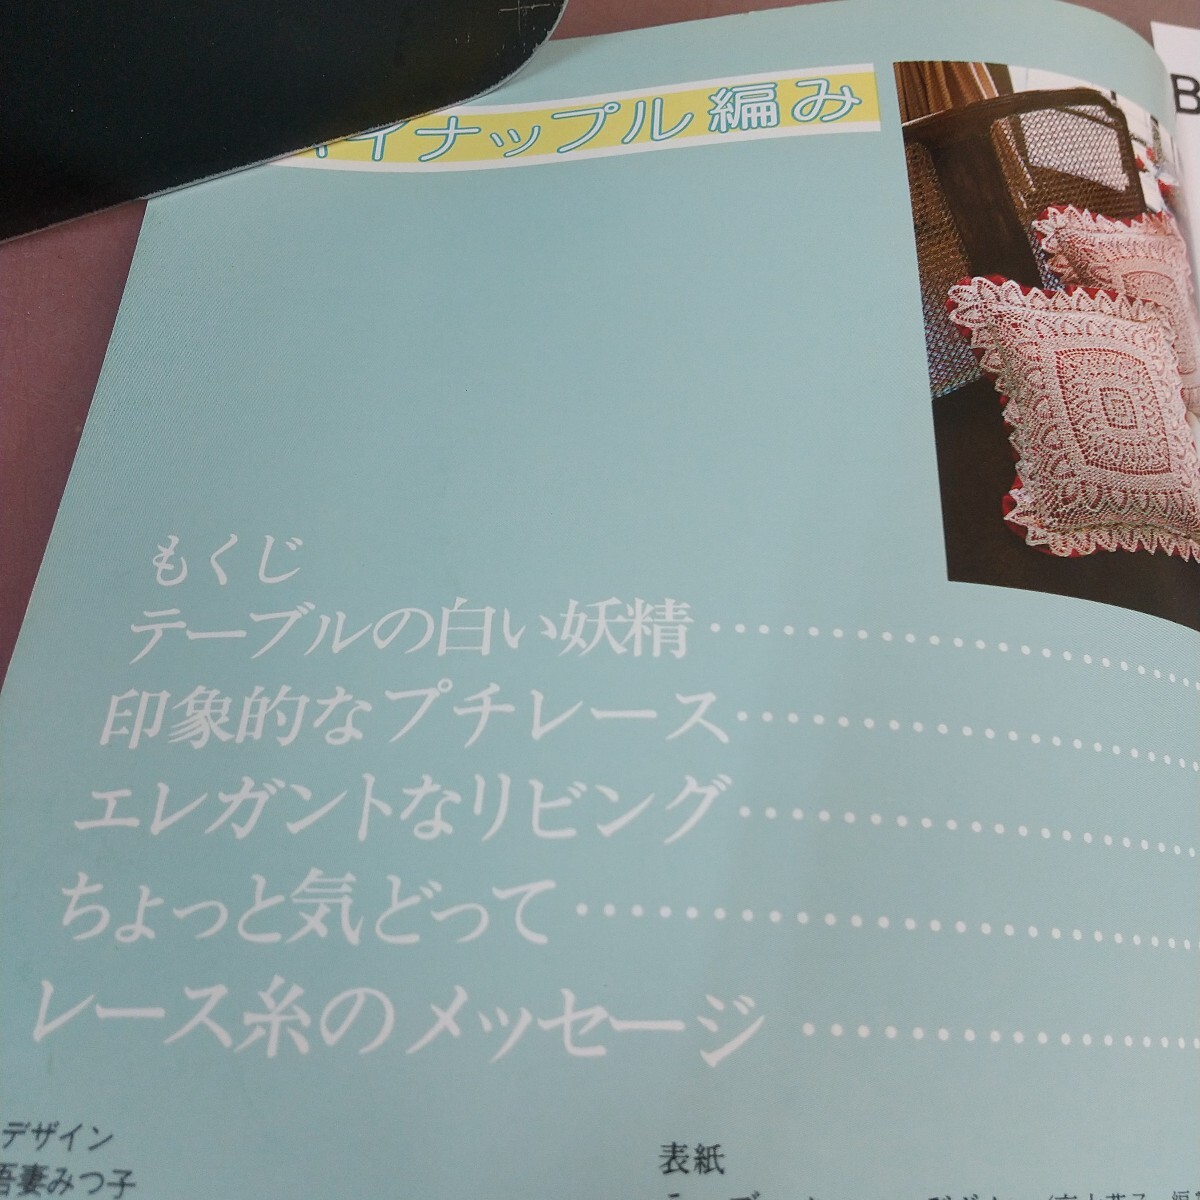 イナップル編み
B
もくじ
テーブルの白い妖精
印象的なプチレース
エレガントなリビング
ちょっと気どって
レース糸のメッセージ
デザイン
吾妻みつ子
表紙